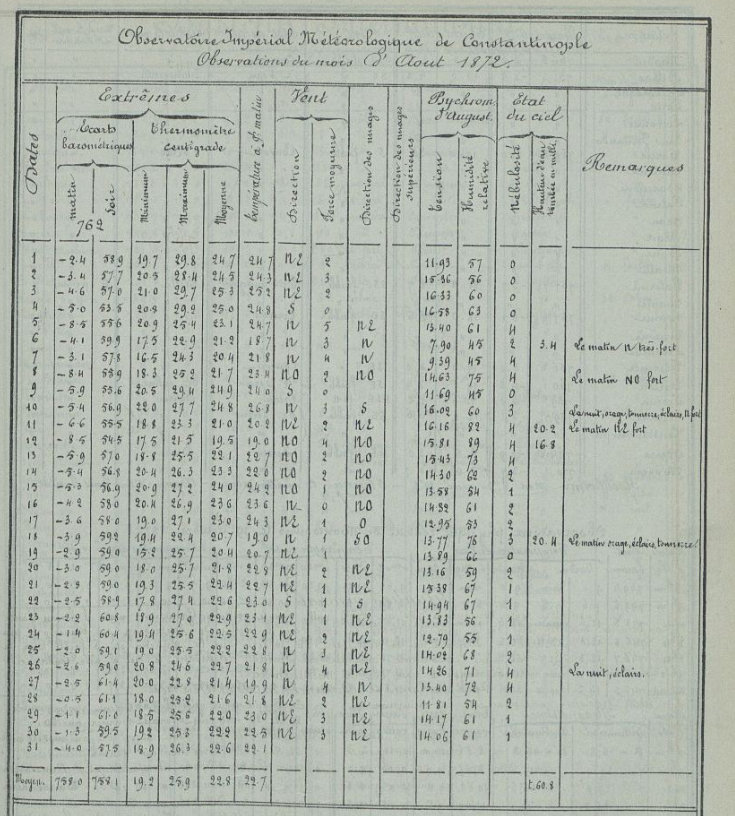 Observatoire Impérial Météorologique de Constantinople
Observations du mois d'Aout 1872.
Dates
Extrêmes
Ecarts barométriques
matin
Soir
762
thermomètre centigrade
Minimum
Maximum
Moyenne
température à 9h matin
Vent
Direction
Force moyenne
Direction des nuages
Direction des nuages supérieurs
Psychrom. d'August.
Tension
Humidité relative
Etat du ciel
Nébulosité
Hauteur d'eau tombée en millim.
Remarques
1 -2.4 58.9 19.7 29.8 24.7 24.7 NE 2 11.93 57 0
2 -3.4 57.7 20.5 28.4 24.5 24.3 NE 3 15.36 56 0
3 -4.6 57.0 21.0 29.7 25.3 25.2 NE 2 16.33 60 0
4 -5.0 53.5 20.8 29.2 25.0 24.8 S 0 16.58 63 0
5 -8.5 55.6 20.9 25.4 23.1 24.7 N 5 NE 13.40 61 4
6 -4.1 59.9 17.5 22.9 21.2 18.7 N 3 N 7.90 45 2 3.4 Le matin N très fort
7 -3.1 57.8 16.5 24.3 20.4 21.8 N 4 N 9.39 45 4
8 -8.4 58.9 18.3 25.2 21.7 23.4 NO 2 NO 14.63 75 4 Le matin NO fort
9 -5.9 55.6 20.5 29.4 24.9 24.0 S 0 11.69 45 0
10 -5.4 56.9 22.0 27.7 24.8 26.8 N 3 S 16.02 60 3 La nuit, orage, tonnerre, éclairs, N fort
11 -6.6 55.5 18.8 23.3 21.0 20.2 NE 2 NE 16.16 82 4 20.2 Le matin NE fort
12 -8.5 54.5 17.5 21.5 19.5 19.0 NO 4 NO 15.81 89 4 16.8
13 -5.9 57.0 18.8 25.5 22.1 22.7 NO 2 NO 15.43 73 4
14 -5.4 56.8 20.4 26.3 23.3 22.0 NO 2 NO 14.30 62 2
15 -5.3 56.9 20.9 27.2 24.0 24.2 NO 1 NO 13.58 54 1
16 -4.2 58.0 20.4 26.9 23.6 23.6 N 0 NO 14.32 61 2
17 -3.6 58.0 19.0 27.1 23.0 24.3 NE 1 O 12.95 53 2
18 -3.9 59.2 19.4 22.4 20.7 19.0 N 1 SO 13.77 76 3 20.4 Le matin orage, éclairs, tonnerre.
19 -2.9 59.0 15.2 25.7 20.4 20.7 NE 1 13.89 66 0
20 -3.0 59.0 18.0 25.7 21.8 22.8 NE 2 NE 13.16 59 2
21 -2.8 59.0 19.3 25.5 22.4 22.7 NE 1 NE 15.38 67 1
22 -2.5 58.9 17.8 27.4 22.6 23.0 S 1 S 14.94 67 1
23 -2.2 60.8 18.9 27.0 22.9 23.1 NE 1 NE 13.83 56 1
24 -1.4 60.4 19.4 25.6 22.5 22.9 NE 2 NE 12.79 55 1
25 -2.0 59.1 19.0 25.5 22.2 22.8 N 3 NE 14.02 68 2
26 -2.6 59.0 20.8 24.6 22.7 21.8 N 4 NE 14.26 71 4 La nuit, éclairs.
27 -2.5 61.4 20.0 22.8 21.4 19.9 N 4 N 13.40 72 4
28 -0.5 61.1 18.0 25.2 21.6 21.8 NE 2 NE 11.81 54 2
29 -1.1 61.0 18.5 25.6 22.0 23.0 NE 3 NE 14.17 61 1
30 -1.3 59.5 19.2 25.3 22.2 22.5 NE 3 NE 14.06 61 1
31 -4.0 57.5 18.9 26.3 22.6 22.1
Moyen. 758.0 758.1 19.2 25.9 22.8 22.7 t.60.8